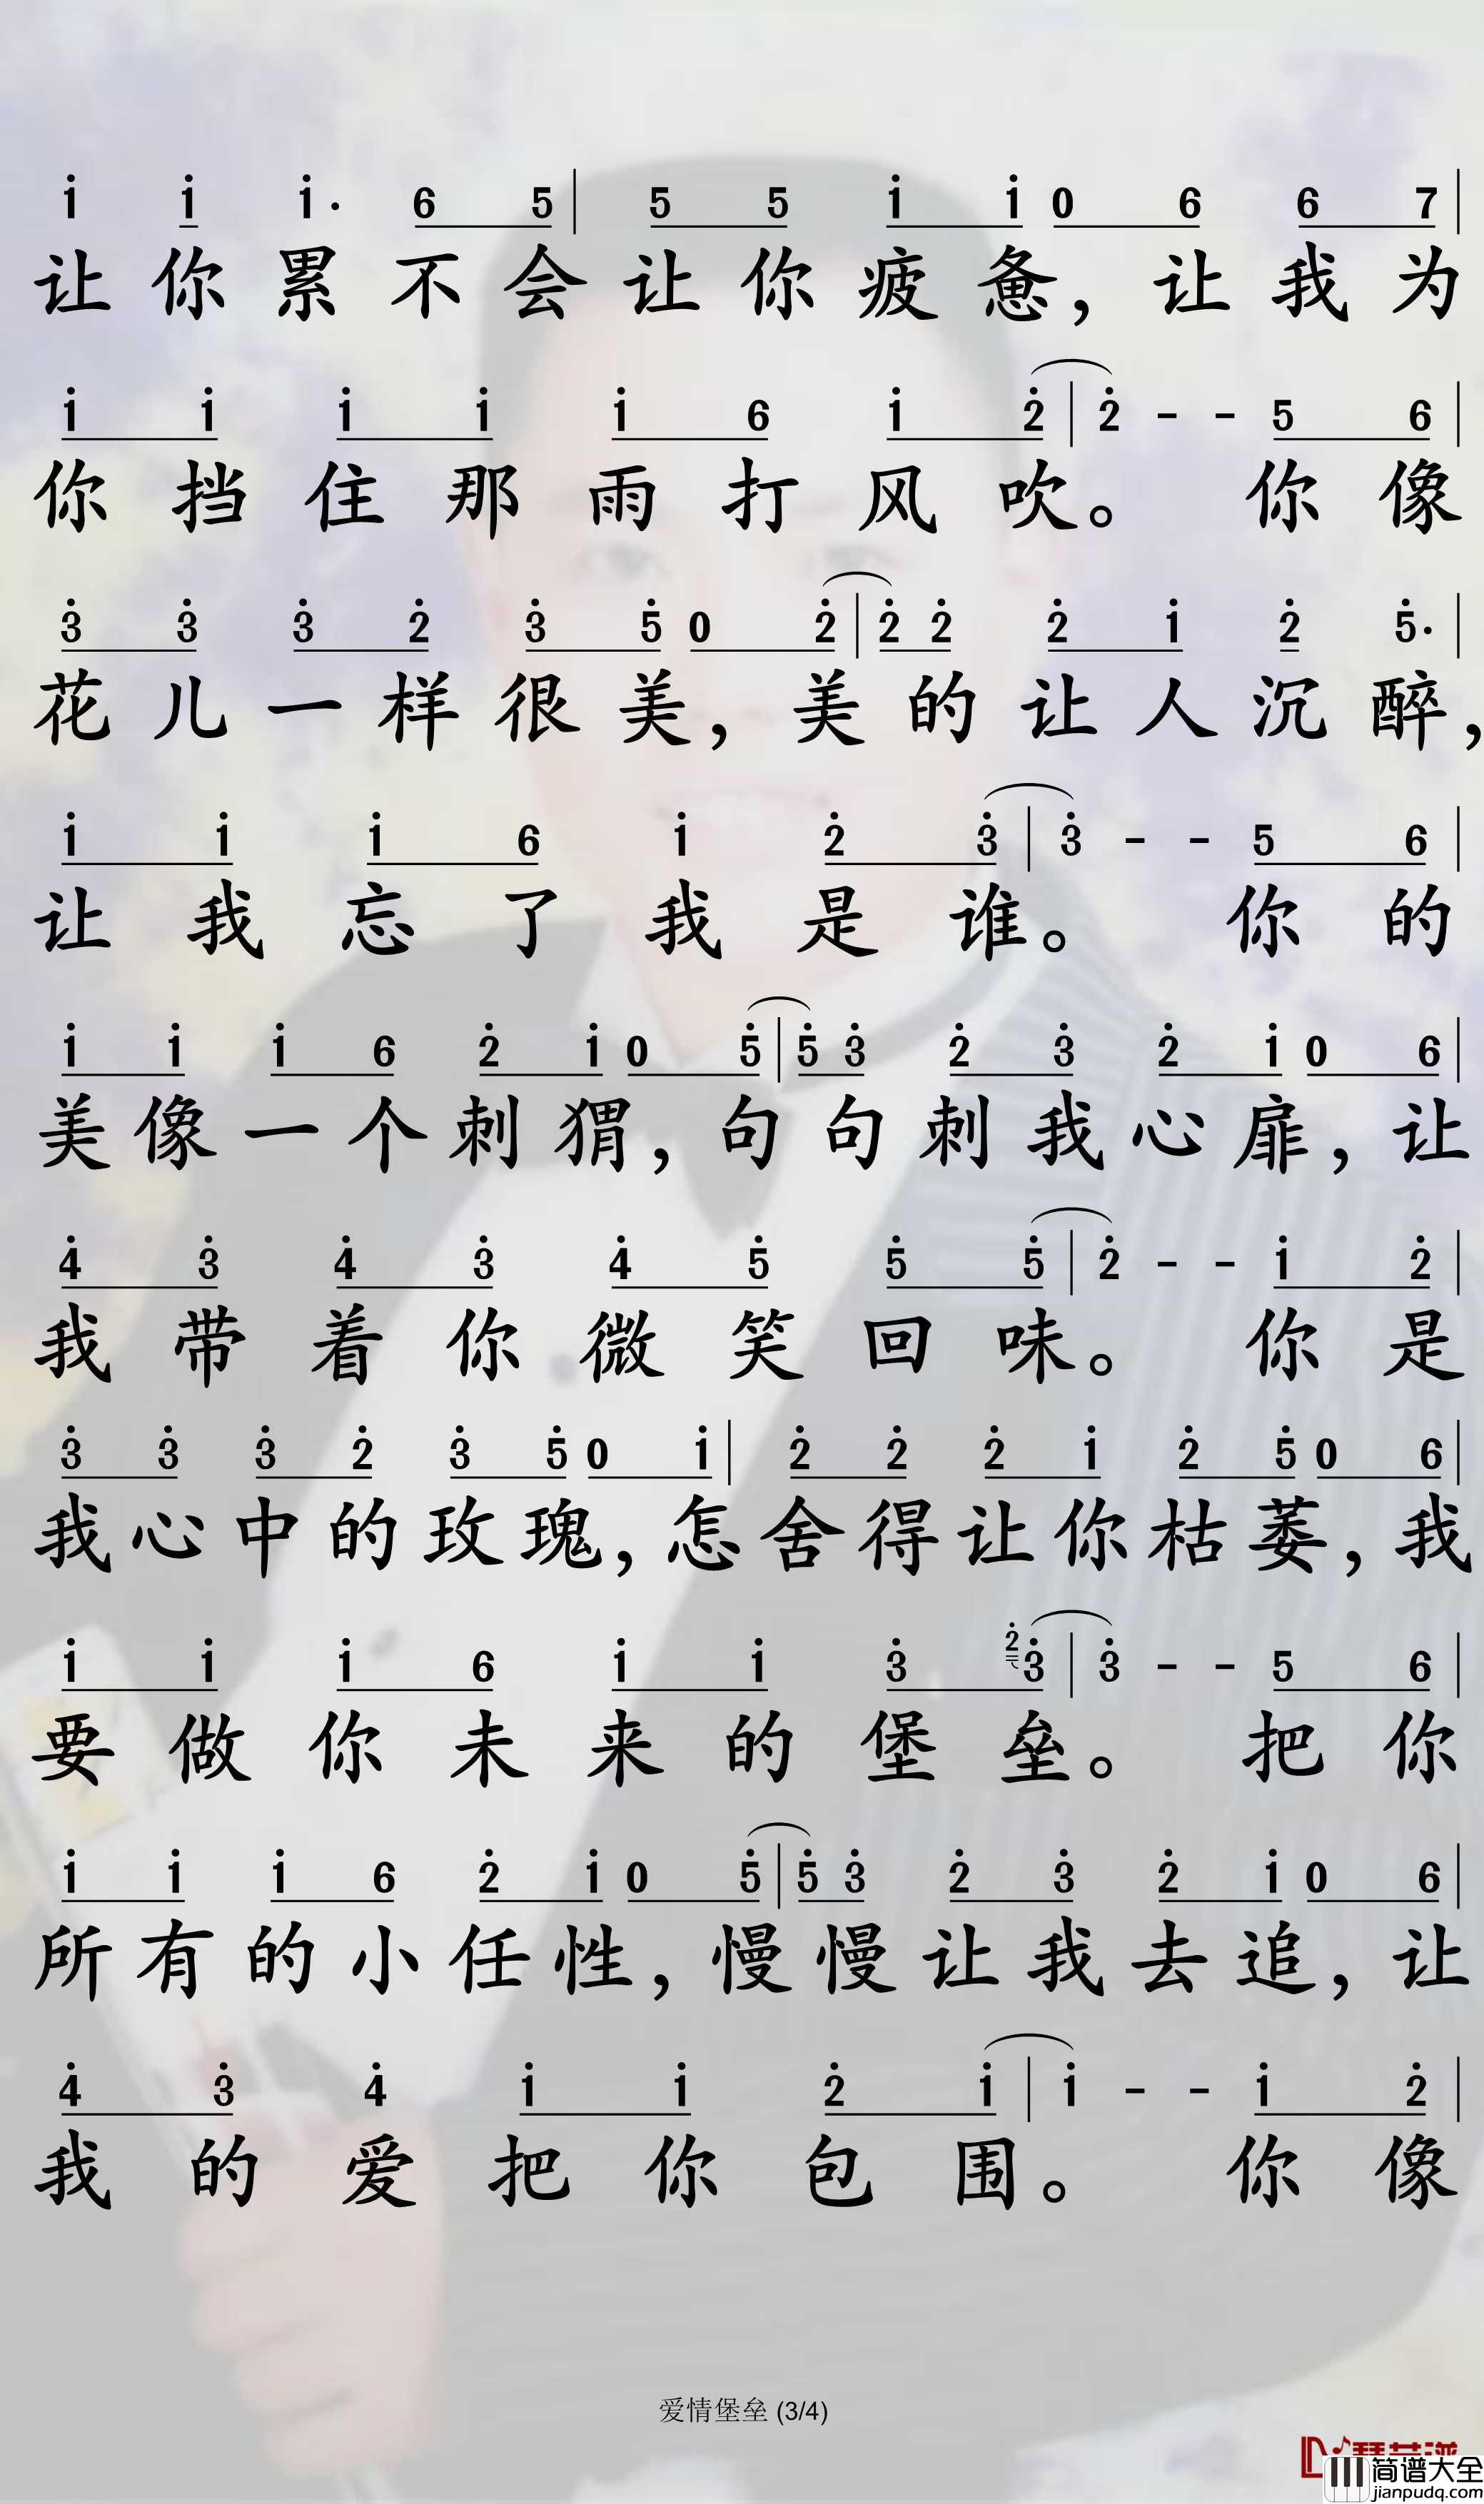 i i i· 6 5 | 5 5 i i 0 6 6 7 |
让你累不会让你疲惫，让我为
i i i i i 6 i 2̇ | 2̇ - - 5 6 |
你挡住那雨打风吹。你像
3̇ 3̇ 3̇ 2̇ 3̇ 5̇ 0 2̇ | 2̇ 2̇ 2̇ i 2̇ 5̇· |
花儿一样很美，美的让人沉醉，
i i i 6 i 2̇ 3̇ | 3̇ - - 5 6 |
让我忘了我是谁。你的
i i i 6 2̇ i 0 5̇ | 5̇ 3̇ 2̇ 3̇ 2̇ i 0 6 |
美像一个刺猬，句句刺我心扉，让
4̇ 3̇ 4̇ 3̇ 4̇ 5̇ 5̇ 5̇ | 2̇ - - i 2̇ |
我带着你微笑回味。你是
3̇ 3̇ 3̇ 2̇ 3̇ 5̇ 0 i | 2̇ 2̇ 2̇ i 2̇ 5̇ 0 6 |
我心中的玫瑰，怎舍得让你枯萎，我
i i i 6 i i 3̇ 2̇ 3̇ | 3̇ - - 5 6 |
要做你未来的堡垒。把你
i i i 6 2̇ i 0 5̇ | 5̇ 3̇ 2̇ 3̇ 2̇ i 0 6 |
所有的小任性，慢慢让我去追，让
4̇ 3̇ 4̇ i i 2̇ i | i - - i 2̇ |
我的爱把你包围。你像
爱情堡垒 (3/4)
简谱大全
jianpudq.com